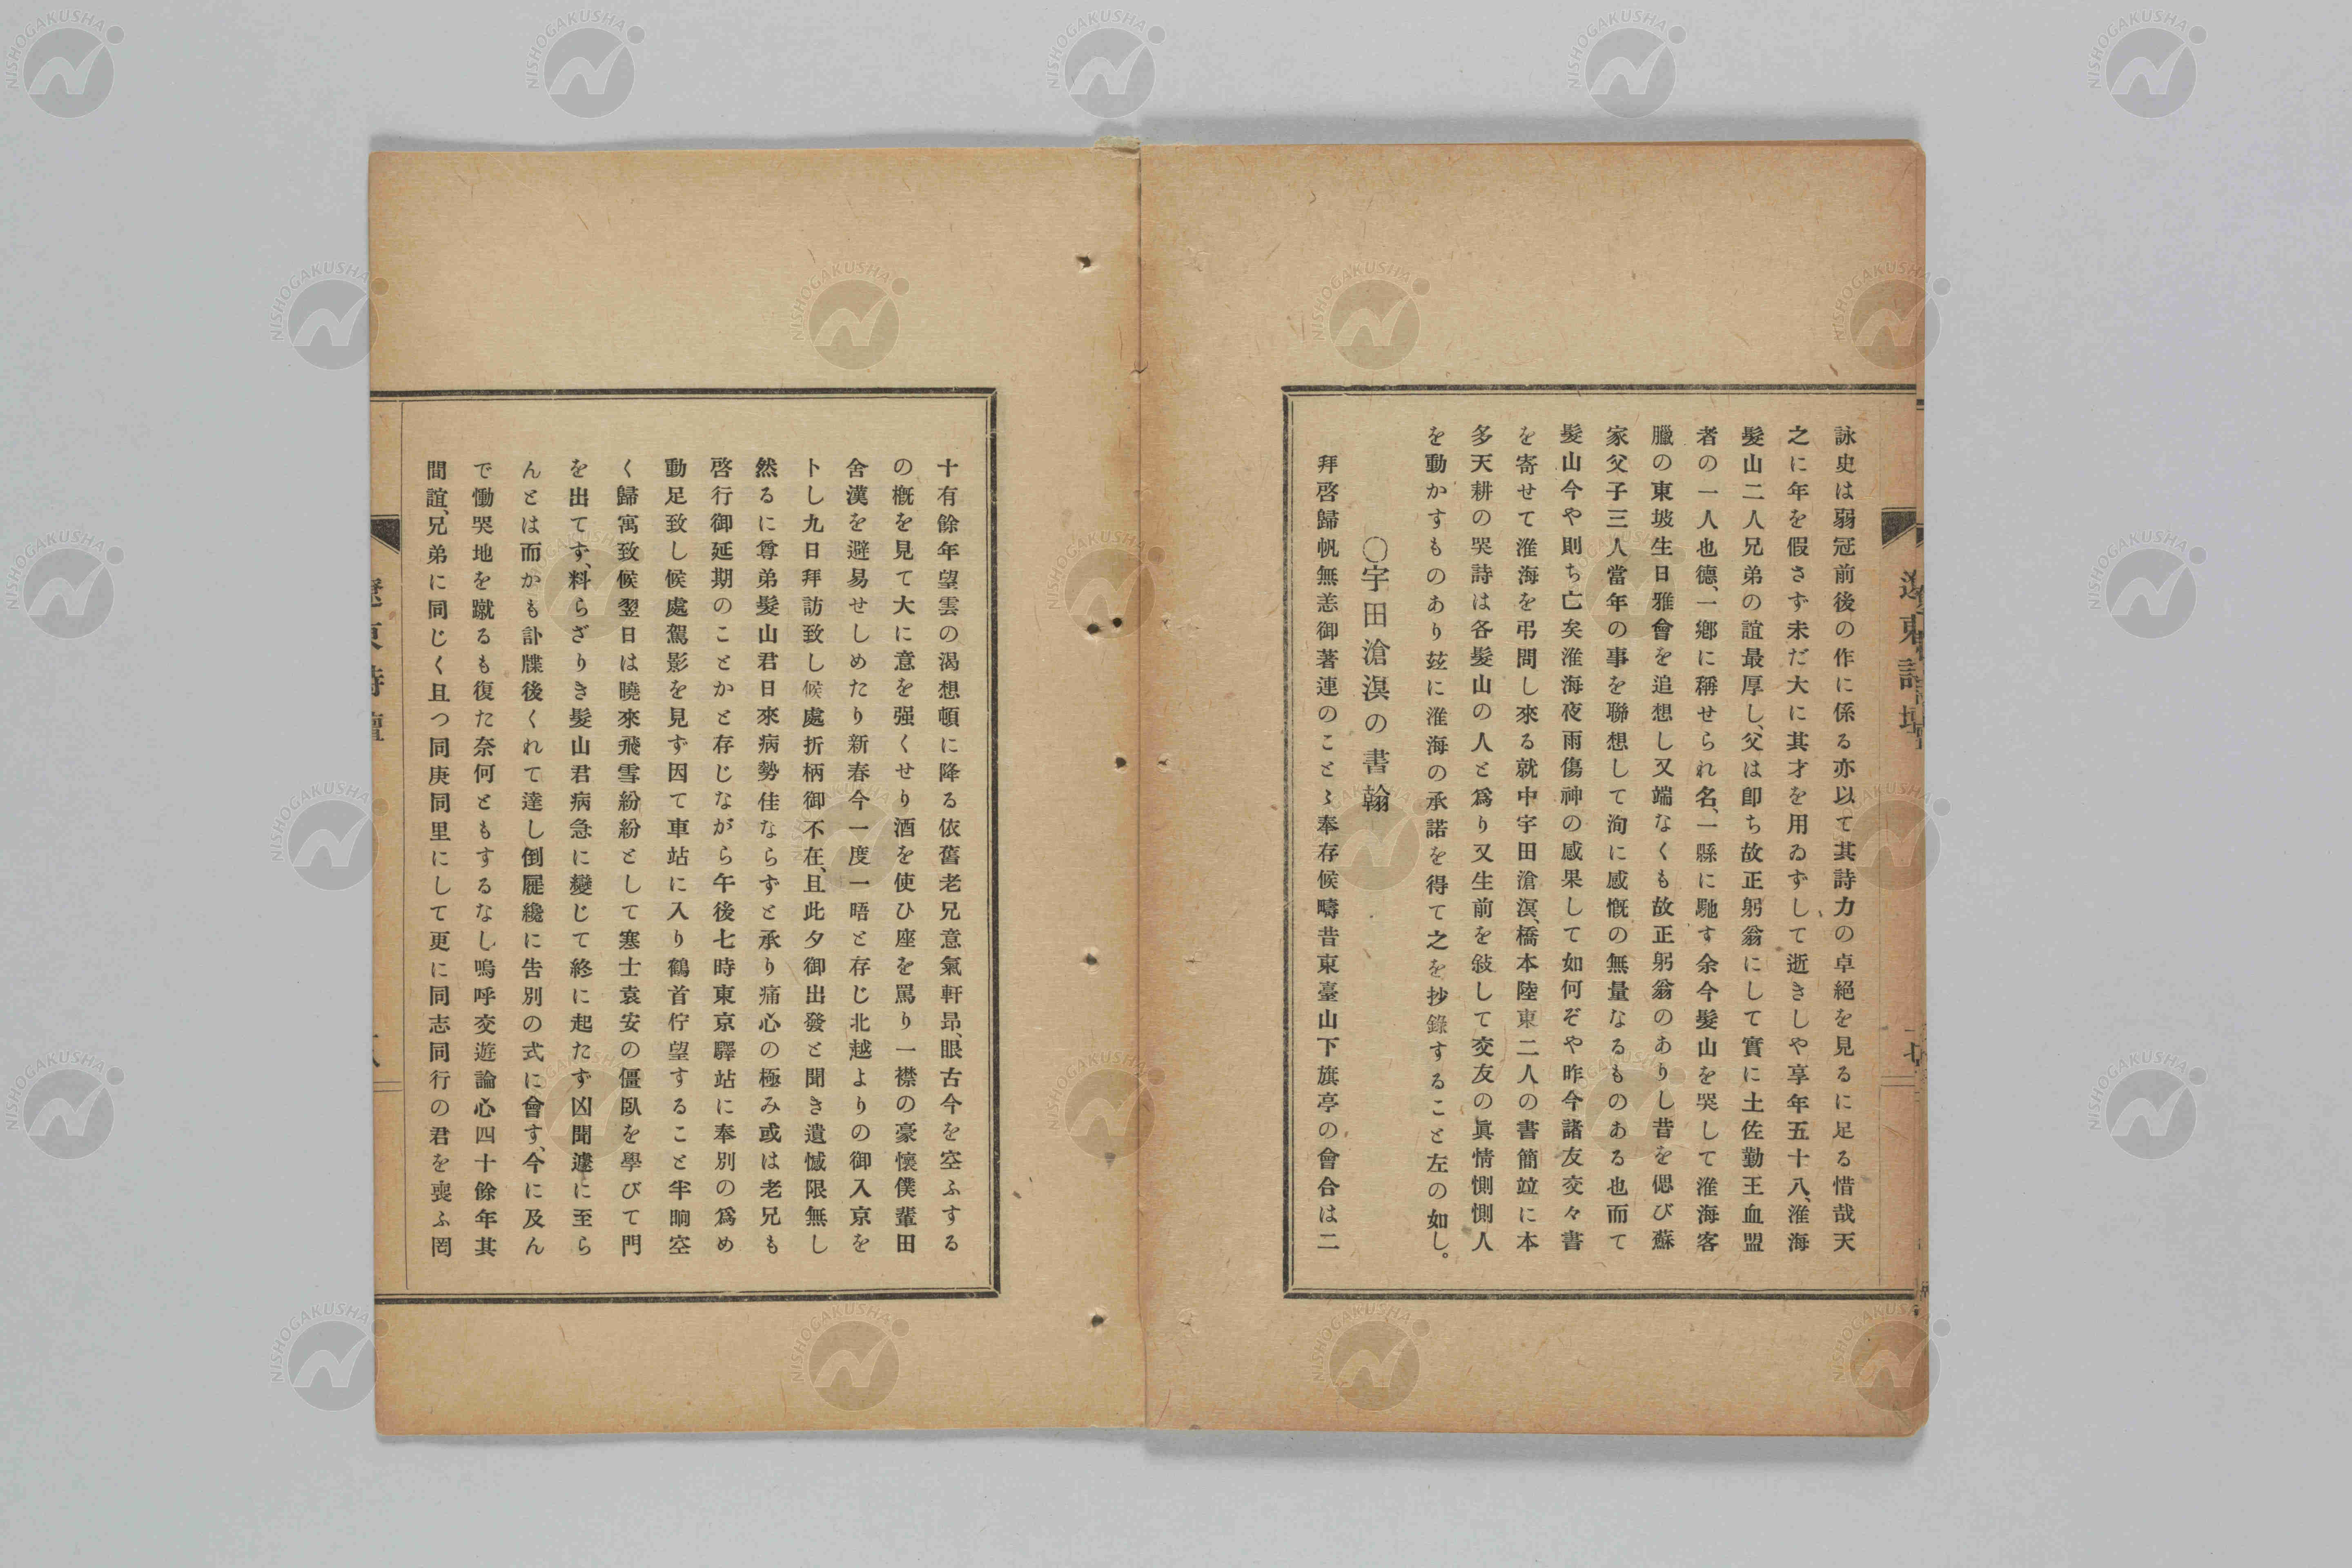 詠史は弱冠前後の作に係る亦以て其詩力の卓絕を見るに足る惜哉天
之に年を假さす未だ大に其才を用ゐずして逝きしや享年五十八、淮海
髮山二人兄弟の誼最厚し、父は卽ち故正躬翁にして實に土佐勤王血盟
者の一人也德、一鄕に稱せられ名、一縣に馳す余今髮山を哭して淮海客
臘の東坡生日雅會を追想し又端なくも故正躬翁のありし昔を偲び蘇
家父子三人當年の事を聯想して洵に感慨の無量なるものある也而て
髮山今や則ち亡矣淮海夜雨傷神の感果して如何ぞや昨今諸友交々書
を寄せて淮海を弔問し來る就中宇田滄溟、橋本陸東二人の書簡竝に本
多天耕の哭詩は各髮山の人と爲り又生前を敍して交友の眞情惻惻人
を動かすものあり玆に淮海の承諾を得て之を抄錄すること左の如し。
〇宇田滄溟の書翰
拜啓歸帆無恙御著連のことゝ奉存候疇昔東臺山下旗亭の會合は二
十有餘年望雲の渴想頓に降る依舊老兄意氣軒昂、眼古今を空ふする
の槪を見て大に意を强くせり酒を使ひ座を罵り一襟の豪懷僕輩田
舍漢を避易せしめたり新春今一度一晤と存じ北越よりの御入京を
卜し九日拜訪致し候處折柄御不在、且此夕御出發と聞き遺憾限無し
然るに尊弟髮山君日來病勢佳ならずと承り痛心の極み或は老兄も
啓行御延期のことかと存じながら午後七時東京驛站に奉別の爲め
動足致し候處駕影を見ず因て車站に入り鶴首佇望すること半晌空
く歸寓致候翌日は曉來飛雪紛紛として寒士袁安の僵臥を學びて門
を出てず、料らざりき髮山君病急に變じて終に起たず凶聞遽に至ら
んとは而かも訃牒後くれて達し倒屣纔に吿別の式に會す、今に及ん
で慟哭地を蹴るも復た奈何ともするなし嗚呼交遊論心四十餘年其
間誼、兄弟に同じく且つ同庚同里にして更に同志同行の君を喪ふ罔